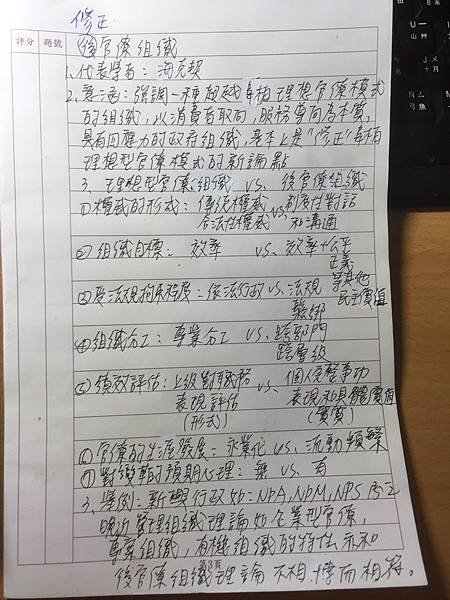 修正
評分 題號
後官僚組織
1.代表學者：海克契
2.意涵：強調一種超越韋柏理想官僚模式
的組織，以消費者取向，服務導向為本質，
具有回應力的政府組織，基本上是"修正"韋柏
理想型官僚模式的新論點
3、理想型官僚組織 VS. 後官僚組織
①權威的形成：傳統權威 VS. 制度性對話
合法性權威 和溝通
② 組織目標： 效率 VS. 效率+公平
正義
等其他
民主價值
③受法規拘束程度：依法行政 VS. 法規
鬆綁
④組織分工：專業分工 VS. 跨部門
跨層級
⑤績效評估：上級對職務 VS. 個人完整事功
表現評估 表現和具體價值
(形式) (實質)
⑥官僚的生涯發展：永業化 VS. 流動頻繁
⑦對變革的預期心理：無 VS. 有
3、舉例：新興行政如：NPA,NPM,NPS
晚近管理組織理論如企業型官僚，
專案組織，有機組織的特性亦和
後官僚組織理論不相悖而相符。
第3頁